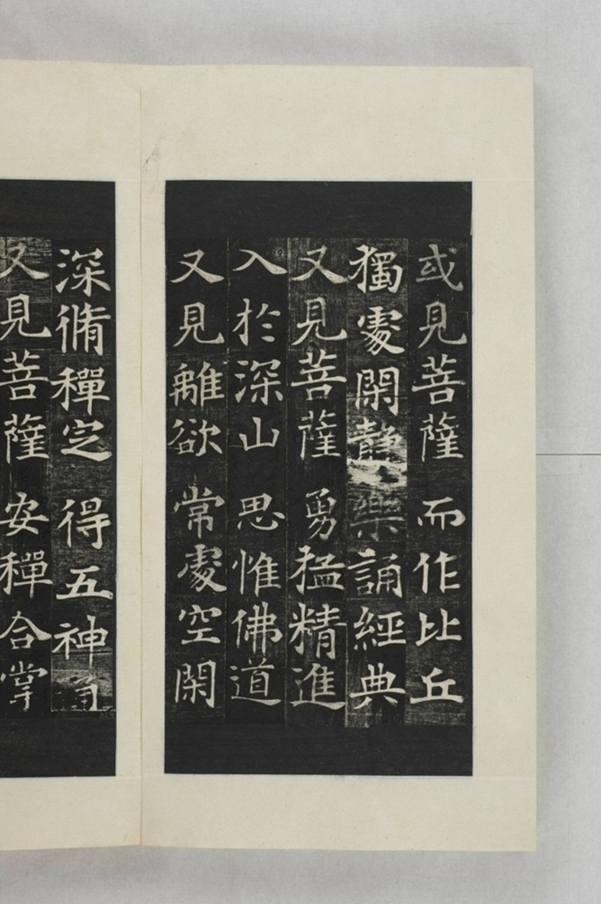 或見菩薩 而作比丘
獨處閑靜 樂誦經典
又見菩薩 勇猛精進
入於深山 思惟佛道
又見離欲 常處空閑
深脩禪定 得五神通
又見菩薩 安禪合掌